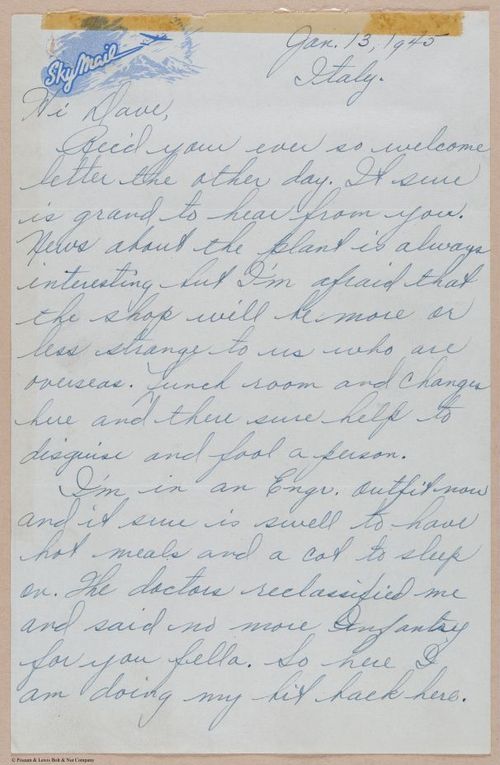 Sky Mail
Jan. 13, 1945
Italy.
Hi Dave,
Rec'd your ever so welcome
letter the other day. It sure
is grand to hear from you.
News about the plant is always
interesting but I'm afraid that
the shop will be more or
less strange to us who are
overseas. Lunch room and changes
here and there sure help to
disguise and fool a person.
I'm in an Engr. outfit now
and it sure is swell to have
hot meals and a cot to sleep
on. The doctors reclassified me
and said no more Infantry
for you fella. So here I
am doing my bit back here.
© Pheoll & Lewis Bolt & Nut Company